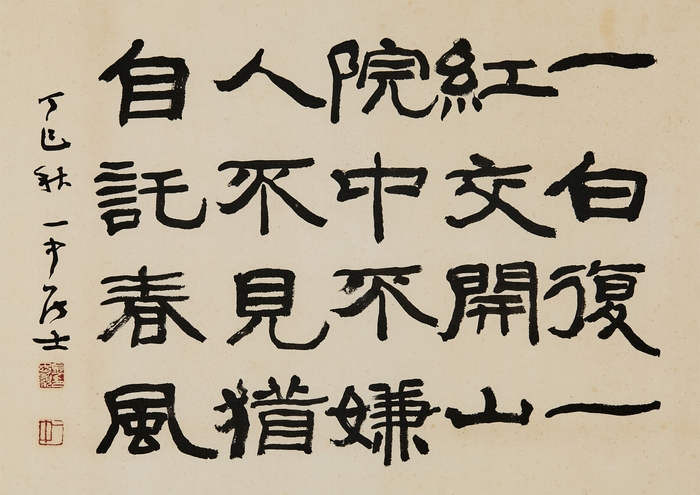 一白復一
紅交開山
院中不嫌
人不見猶
自託春風
丁巳秋一中居士